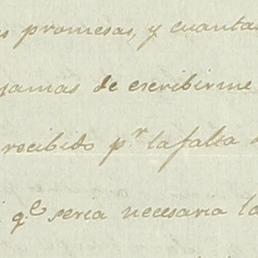 s promesas, y cuanta
jamas de escribirme
recibido pr. la falta
qe. seria necesaria la